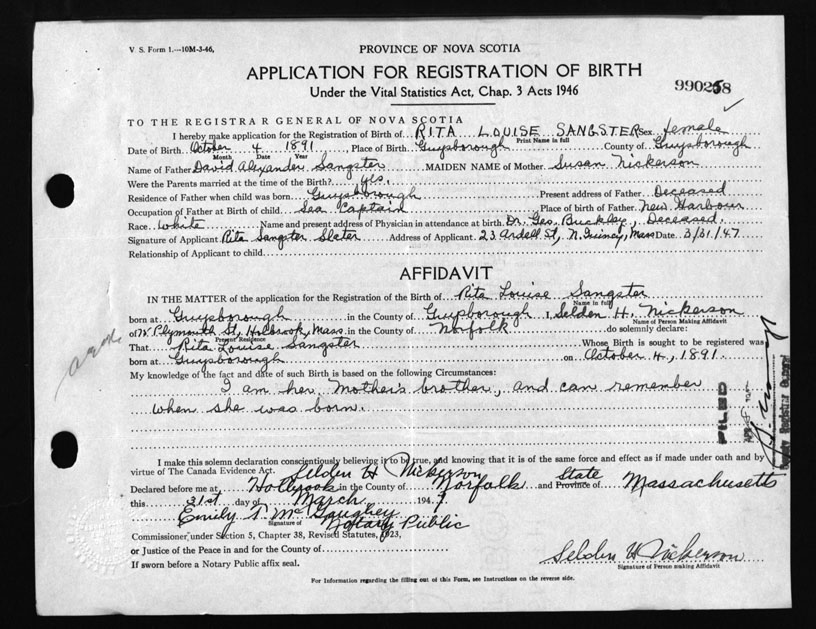 V. S. Form 1.—10M-3-46,
PROVINCE OF NOVA SCOTIA
APPLICATION FOR REGISTRATION OF BIRTH
Under the Vital Statistics Act, Chap. 3 Acts 1946
990258
TO THE REGISTRAR GENERAL OF NOVA SCOTIA
I hereby make application for the Registration of Birth of RITA LOUISE SANGSTER Sex female
Print Name in full
Date of Birth October 4 1891 Place of Birth Guysborough County of Guysborough
Month Date Year
Name of Father David Alexander Sangster MAIDEN NAME of Mother Susan Nickerson
Were the Parents married at the time of the Birth? yes.
Residence of Father when child was born Guysborough Present address of Father Deceased
Occupation of Father at Birth of child Sea Captain Place of birth of Father New Harbour
Race White Name and present address of Physician in attendance at birth Dr. Geo. Buckley, Deceased.
Signature of Applicant Rita Sangster Slater Address of Applicant 23 Ardell St, N. Quincy, Mass Date 3/31/47
Relationship of Applicant to child
AFFIDAVIT
IN THE MATTER of the application for the Registration of the Birth of Rita Louise Sangster
Name in full
born at Guysborough in the County of Guysborough I, Selden H. Nickerson
Name of Person Making Affidavit
of W. Plymouth St, Holbrook, Mass. in the County of Norfolk do solemnly declare:
Present Residence
That Rita Louise Sangster Whose Birth is sought to be registered was
born at Guysborough on October 4, 1891.
My knowledge of the fact and date of such Birth is based on the following Circumstances:
I am her Mother's brother, and can remember
when she was born.
FILED
Deputy Registrar General
I make this solemn declaration conscientiously believing it to be true, and knowing that it is of the same force and effect as if made under oath and by
virtue of The Canada Evidence Act. Selden H Nickerson
Declared before me at Holbrook in the County of Norfolk and State Province of Massachusetts
this 31st day of March 1947
Emily T. McGaughey
Signature of Notary Public
Commissioner under Section 5, Chapter 38, Revised Statutes, 1923,
or Justice of the Peace in and for the County of
If sworn before a Notary Public affix seal.
Selden H Nickerson
Signature of Person making Affidavit
For Information regarding the filling out of this Form, see Instructions on the reverse side.